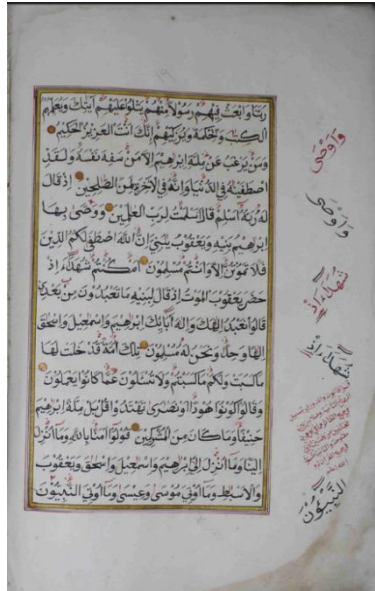 ربنا وابعث فيهم رسولا منهم يتلوا عليهم ايتك ويعلمهم
الكتب والحكمة ويزكيهم انك انت العزيز الحكيم
ومن يرغب عن ملة ابرهيم الا من سفه نفسه ولقد
اصطفينه في الدنيا وانه في الاخرة لمن الصلحين اذ قال
له ربه اسلم قال اسلمت لرب العلمين ووصى بها
ابرهيم بنيه ويعقوب يبني ان الله اصطفى لكم الدين
فلا تموتن الا وانتم مسلمون ام كنتم شهداء اذ
حضر يعقوب الموت اذ قال لبنيه ما تعبدون من بعدي
قالوا نعبد الهك واله ابائك ابرهيم واسمعيل واسحق
الها وحدا ونحن له مسلمون تلك امة قد خلت لها
ما كسبت ولكم ما كسبتم ولا تسئلون عما كانوا يعملون
وقالوا كونوا هودا او نصرى تهتدوا قل بل ملة ابرهيم
حنيفا وما كان من المشركين قولوا امنا بالله وما انزل
الينا وما انزل الى ابرهيم واسمعيل واسحق ويعقوب
والاسبط وما اوتي موسى وعيسى وما اوتي النبيون
واوصى
واوصى
شهداء اذ
شهداء اذ
النبيئون